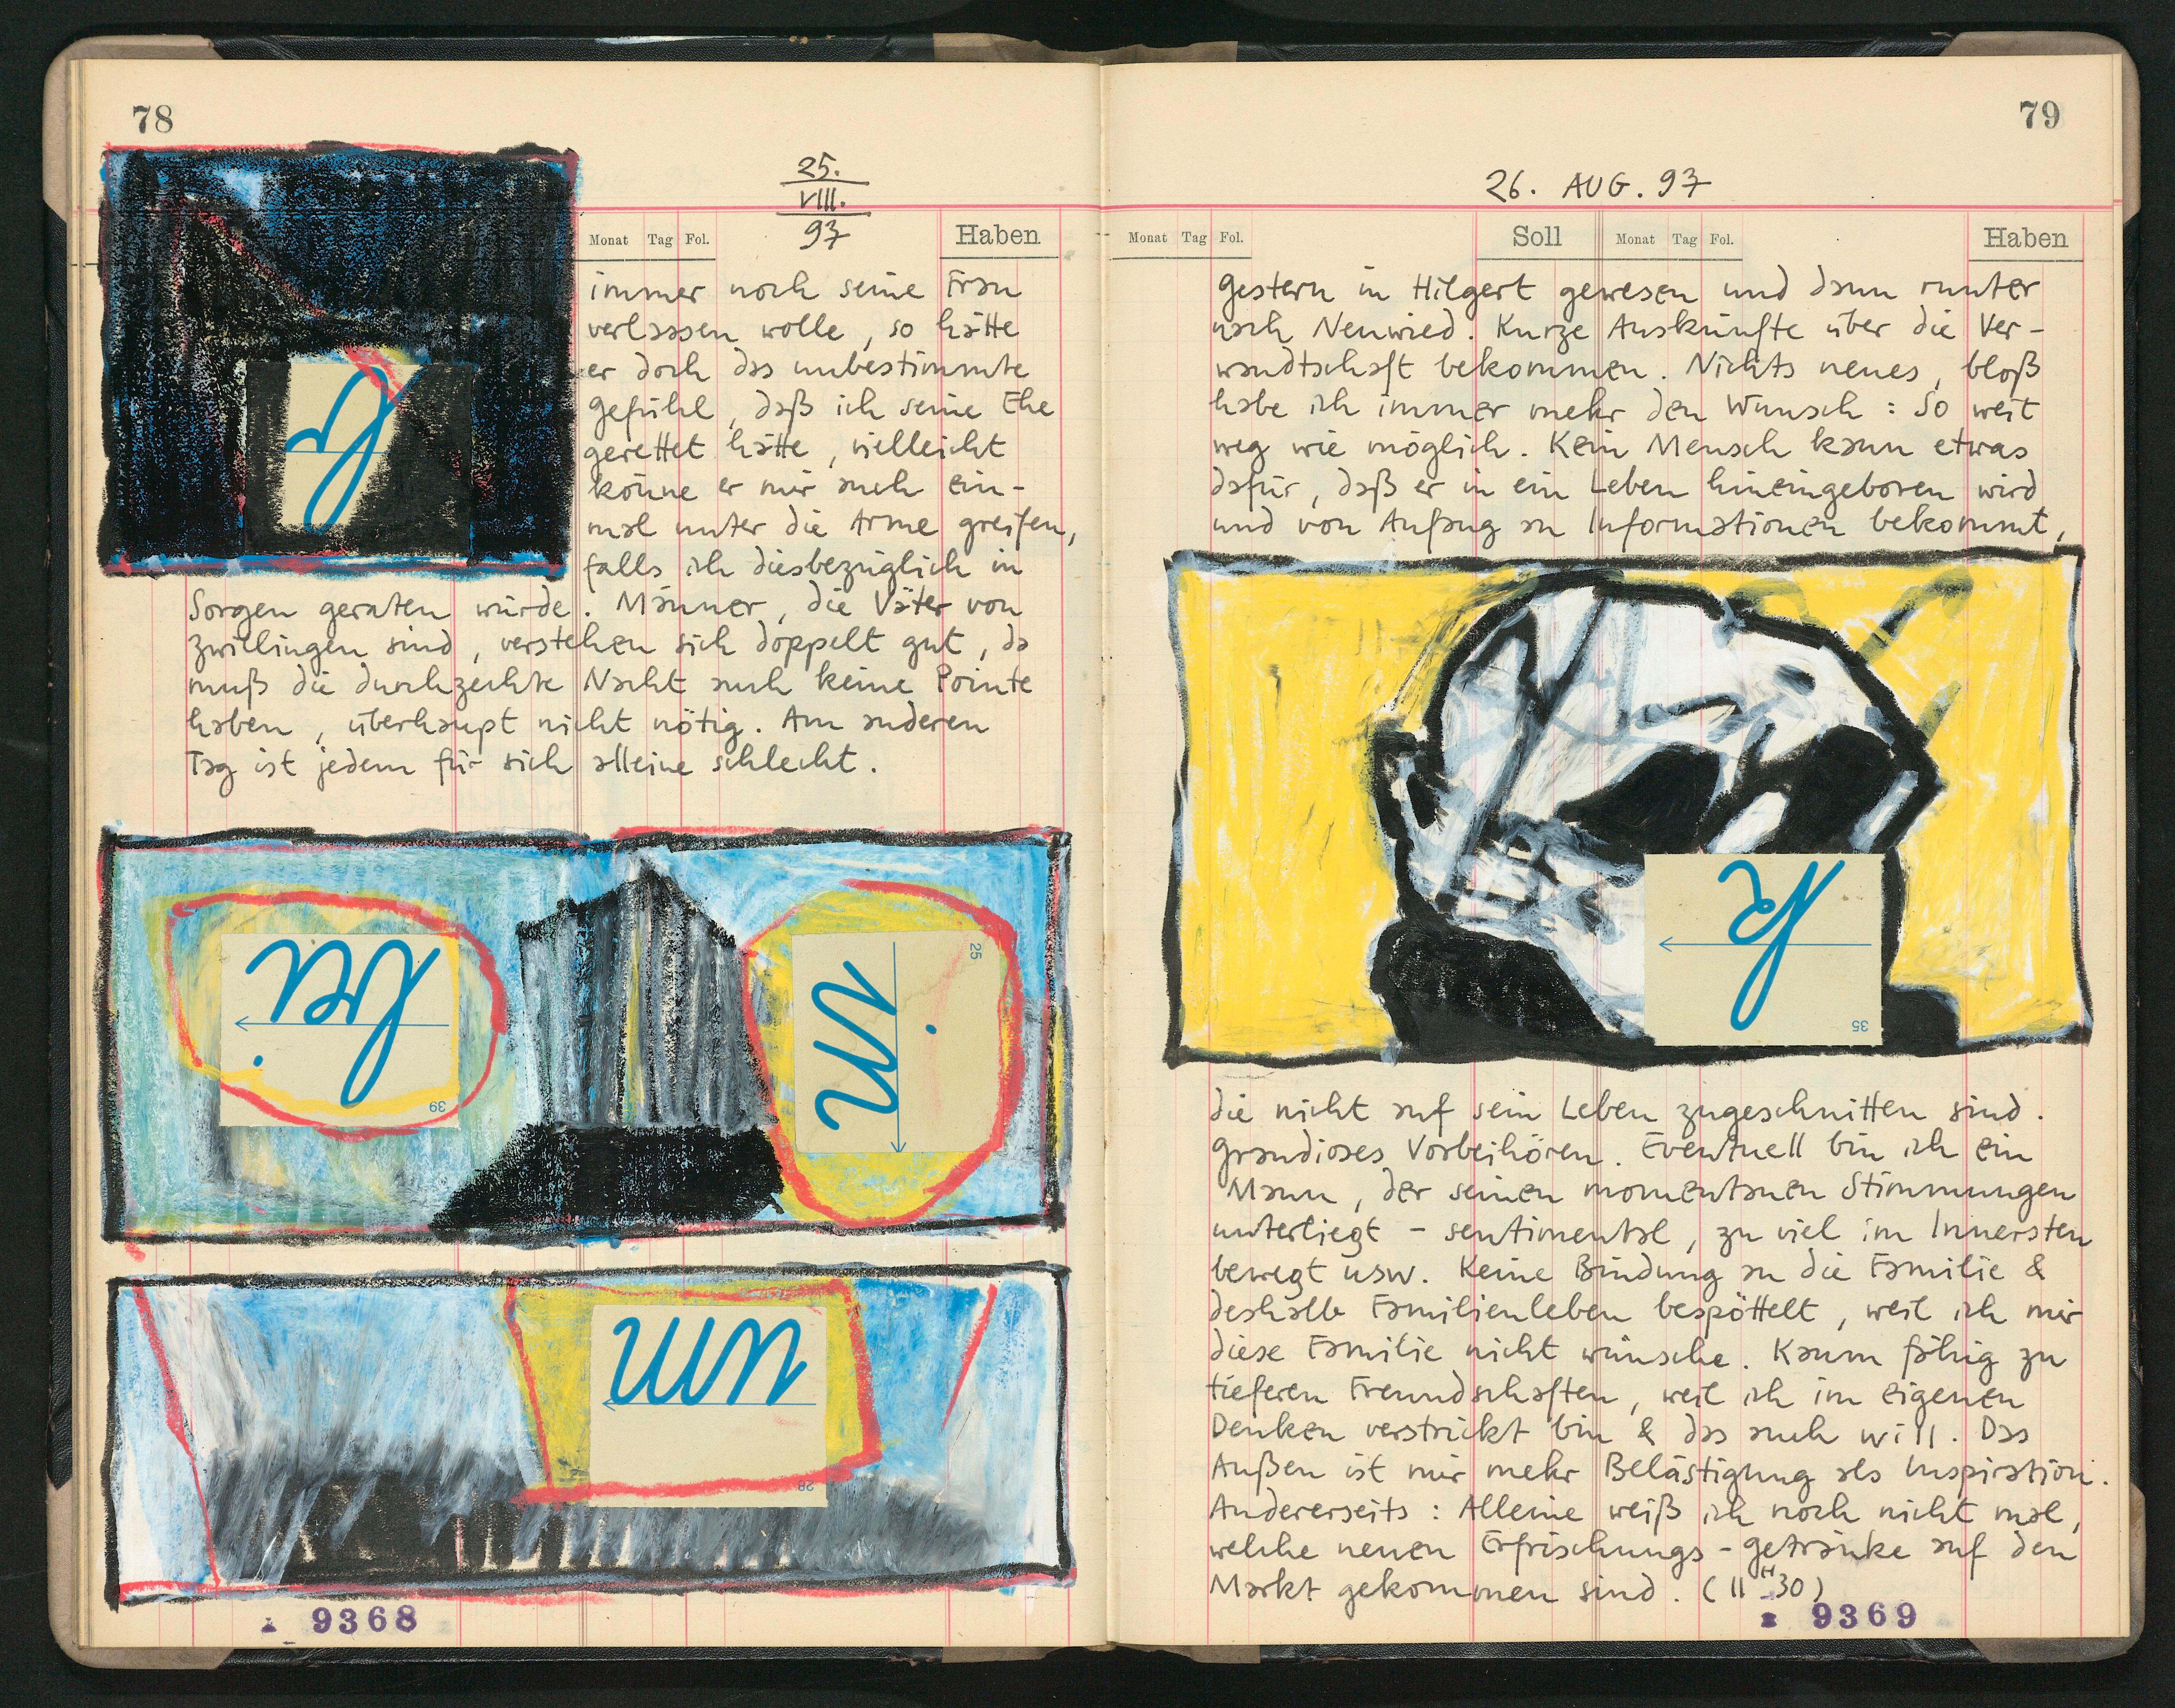 78
25.
VIII.
97
Monat Tag Fol. Haben
immer noch seine Frau
verlassen wolle, so hätte
er doch das unbestimmte
Gefühl, daß ich seine Ehe
gerettet hätte, vielleicht
könne er mir auch ein-
mal unter die Arme greifen,
falls ich diesbezüglich in
Sorgen geraten würde. Männer, die Väter von
Zwillingen sind, verstehen sich doppelt gut, da
muß die durchzechte Nacht auch keine Pointe
haben, überhaupt nicht nötig. Am anderen
Tag ist jedem für sich alleine schlecht.
39
25
28
9368
79
26. AUG. 97
Monat Tag Fol. Soll Monat Tag Fol. Haben
Gestern in Hilgert gewesen und dann runter
nach Neuwied. Kurze Auskünfte über die Ver-
wandtschaft bekommen. Nichts neues, bloß
habe ich immer mehr den Wunsch: So weit
weg wie möglich. Kein Mensch kann etwas
dafür, daß er in ein Leben hineingeboren wird
und von Anfang an Informationen bekommt,
35
die nicht auf sein Leben zugeschnitten sind.
Grandioses Vorbeihören. Eventuell bin ich ein
Mann, der seinen momentanen Stimmungen
unterliegt - sentimental, zu viel im Innersten
bewegt usw. Keine Bindung an die Familie &
deshalb Familienleben bespöttelt, weil ich mir
diese Familie nicht wünsche. Kaum fähig zu
tieferen Freundschaften, weil ich im eigenen
Denken verstrickt bin & das auch will. Das
Außen ist mir mehr Belästigung als Inspiration.
Andererseits: Alleine weiß ich noch nicht mal,
welche neuen Erfrischungs-getränke auf den
Markt gekommen sind. (11 H 30)
9369